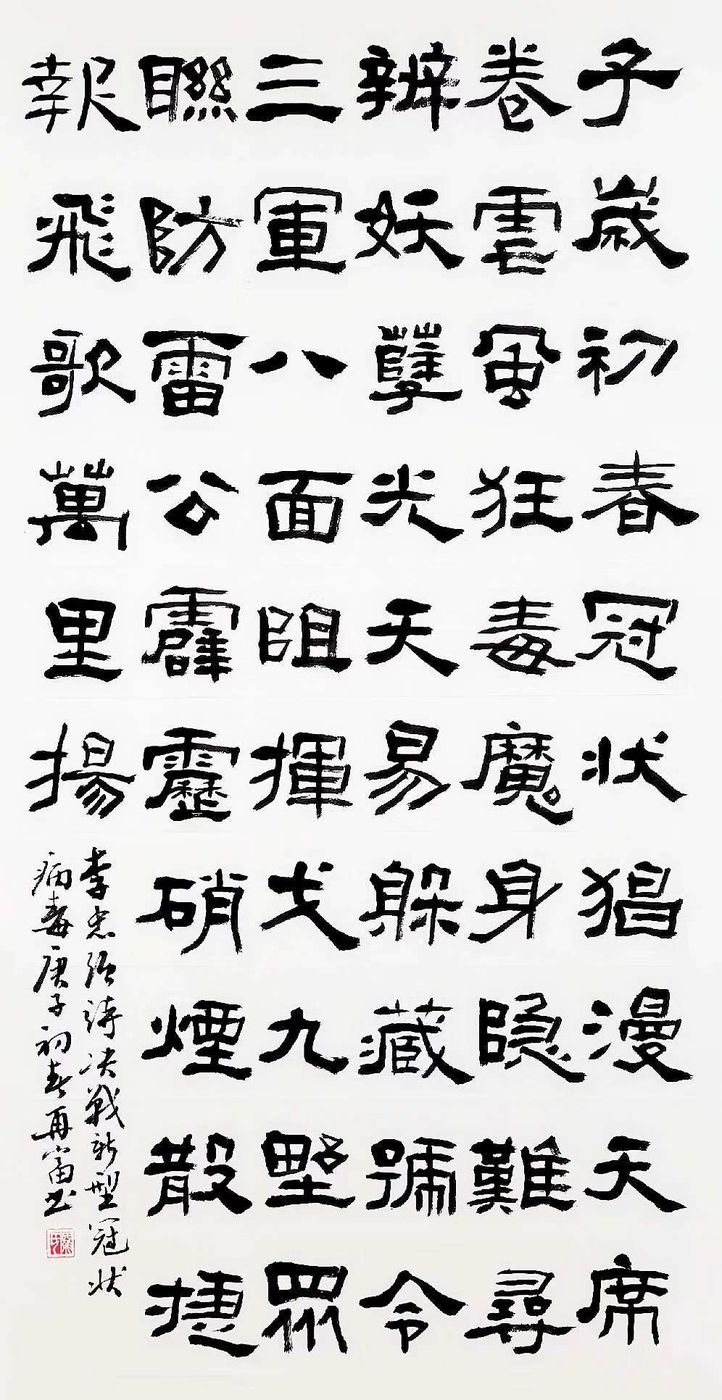 子歲初春冠状猖漫天席
卷雲風狂毒魔身隐難尋
辨妖孽光天易躲藏號令
三軍八面阻揮戈九野眾
聯防雷公霹靂硝煙散捷
報飛歌萬里揚
李忠强詩决戰新型冠状
病毒庚子初春再富书